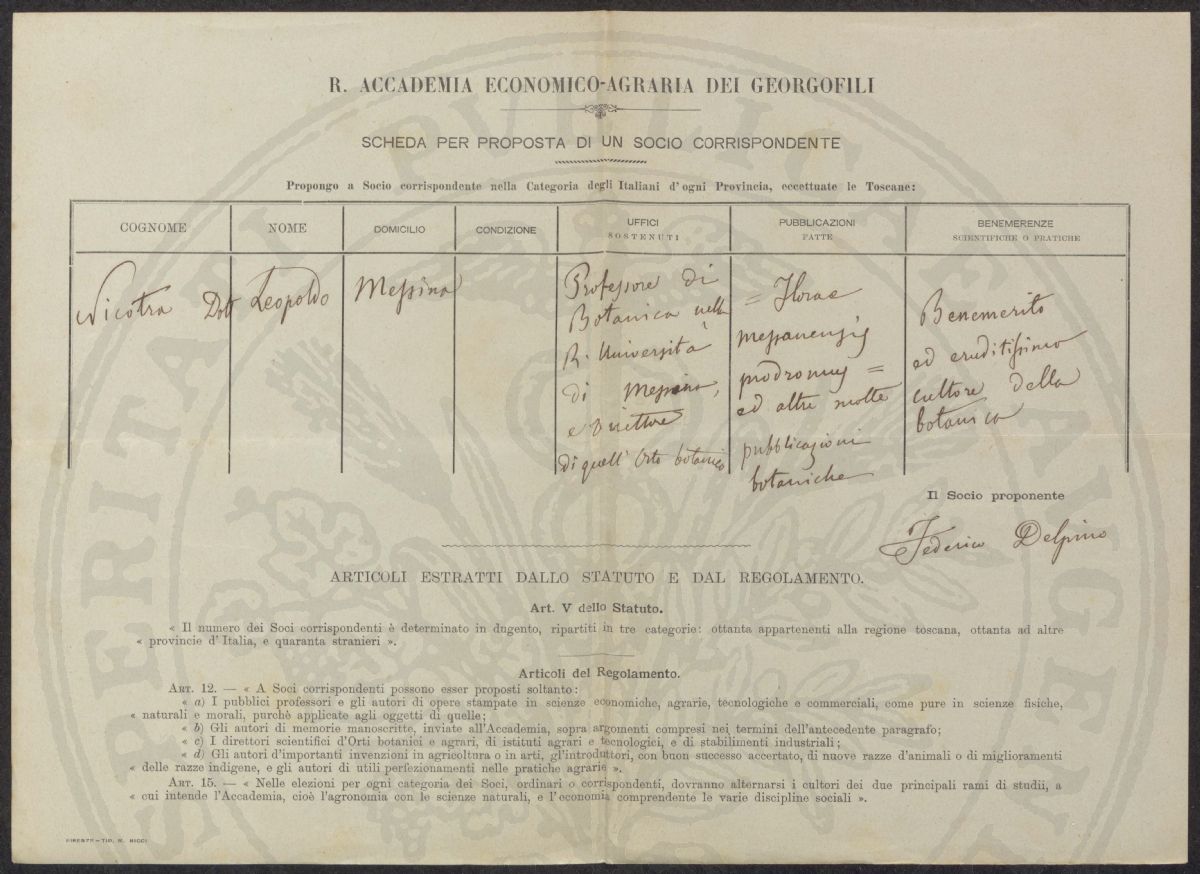 R. ACCADEMIA ECONOMICO-AGRARIA DEI GEORGOFILI
SCHEDA PER PROPOSTA DI UN SOCIO CORRISPONDENTE
Propongo a Socio corrispondente nella Categoria degli Italiani d'ogni Provincia, eccettuate le Toscane:
COGNOME
NOME
DOMICILIO
CONDIZIONE
UFFICI
SOSTENUTI
PUBBLICAZIONI
FATTE
BENEMERENZE
SCIENTIFICHE O PRATICHE
Nicotra Dott
Leopoldo
Messina
Professore di
Botanica nella
R. Università
di Messina,
e Direttore
di quell' Orto botanico
= Florae
messanensis
prodromus =
ed altre molte
pubblicazioni
botaniche
Benemerito
ed eruditissimo
cultore della
botanica
Il Socio proponente
Federico Delpino
ARTICOLI ESTRATTI DALLO STATUTO E DAL REGOLAMENTO.
Art. V dello Statuto.
« Il numero dei Soci corrispondenti è determinato in dugento, ripartiti in tre categorie: ottanta appartenenti alla regione toscana, ottanta ad altre
« provincie d'Italia, e quaranta stranieri ».
Articoli del Regolamento.
ART. 12. — « A Soci corrispondenti possono esser proposti soltanto:
« a) I pubblici professori e gli autori di opere stampate in scienze economiche, agrarie, tecnologiche e commerciali, come pure in scienze fisiche,
« naturali e morali, purchè applicate agli oggetti di quelle;
« b) Gli autori di memorie manoscritte, inviate all'Accademia, sopra argomenti compresi nei termini dell'antecedente paragrafo;
« c) I direttori scientifici d'Orti botanici e agrari, di istituti agrari e tecnologici, e di stabilimenti industriali;
« d) Gli autori d'importanti invenzioni in agricoltura o in arti, gl'introduttori, con buon successo accertato, di nuove razze d'animali o di miglioramenti
« delle razze indigene, e gli autori di utili perfezionamenti nelle pratiche agrarie ».
ART. 15. — « Nelle elezioni per ogni categoria dei Soci, ordinari o corrispondenti, dovranno alternarsi i cultori dei due principali rami di studii, a
« cui intende l'Accademia, cioè l'agronomia con le scienze naturali, e l'economia comprendente le varie discipline sociali ».
FIRENZE – TIP. M. RICCI
PROSPERITATI PUBLICAE AUGENDAE